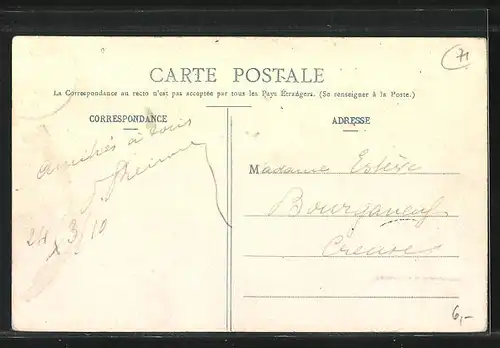 71
CARTE POSTALE
La Correspondance au recto n'est pas acceptée par tous les Pays Étrangers. (Se renseigner à la Poste.)
CORRESPONDANCE
Amitiés à tous
24 3/10
ADRESSE
Madame Estève
Bourganeuf
Creuse
6,-